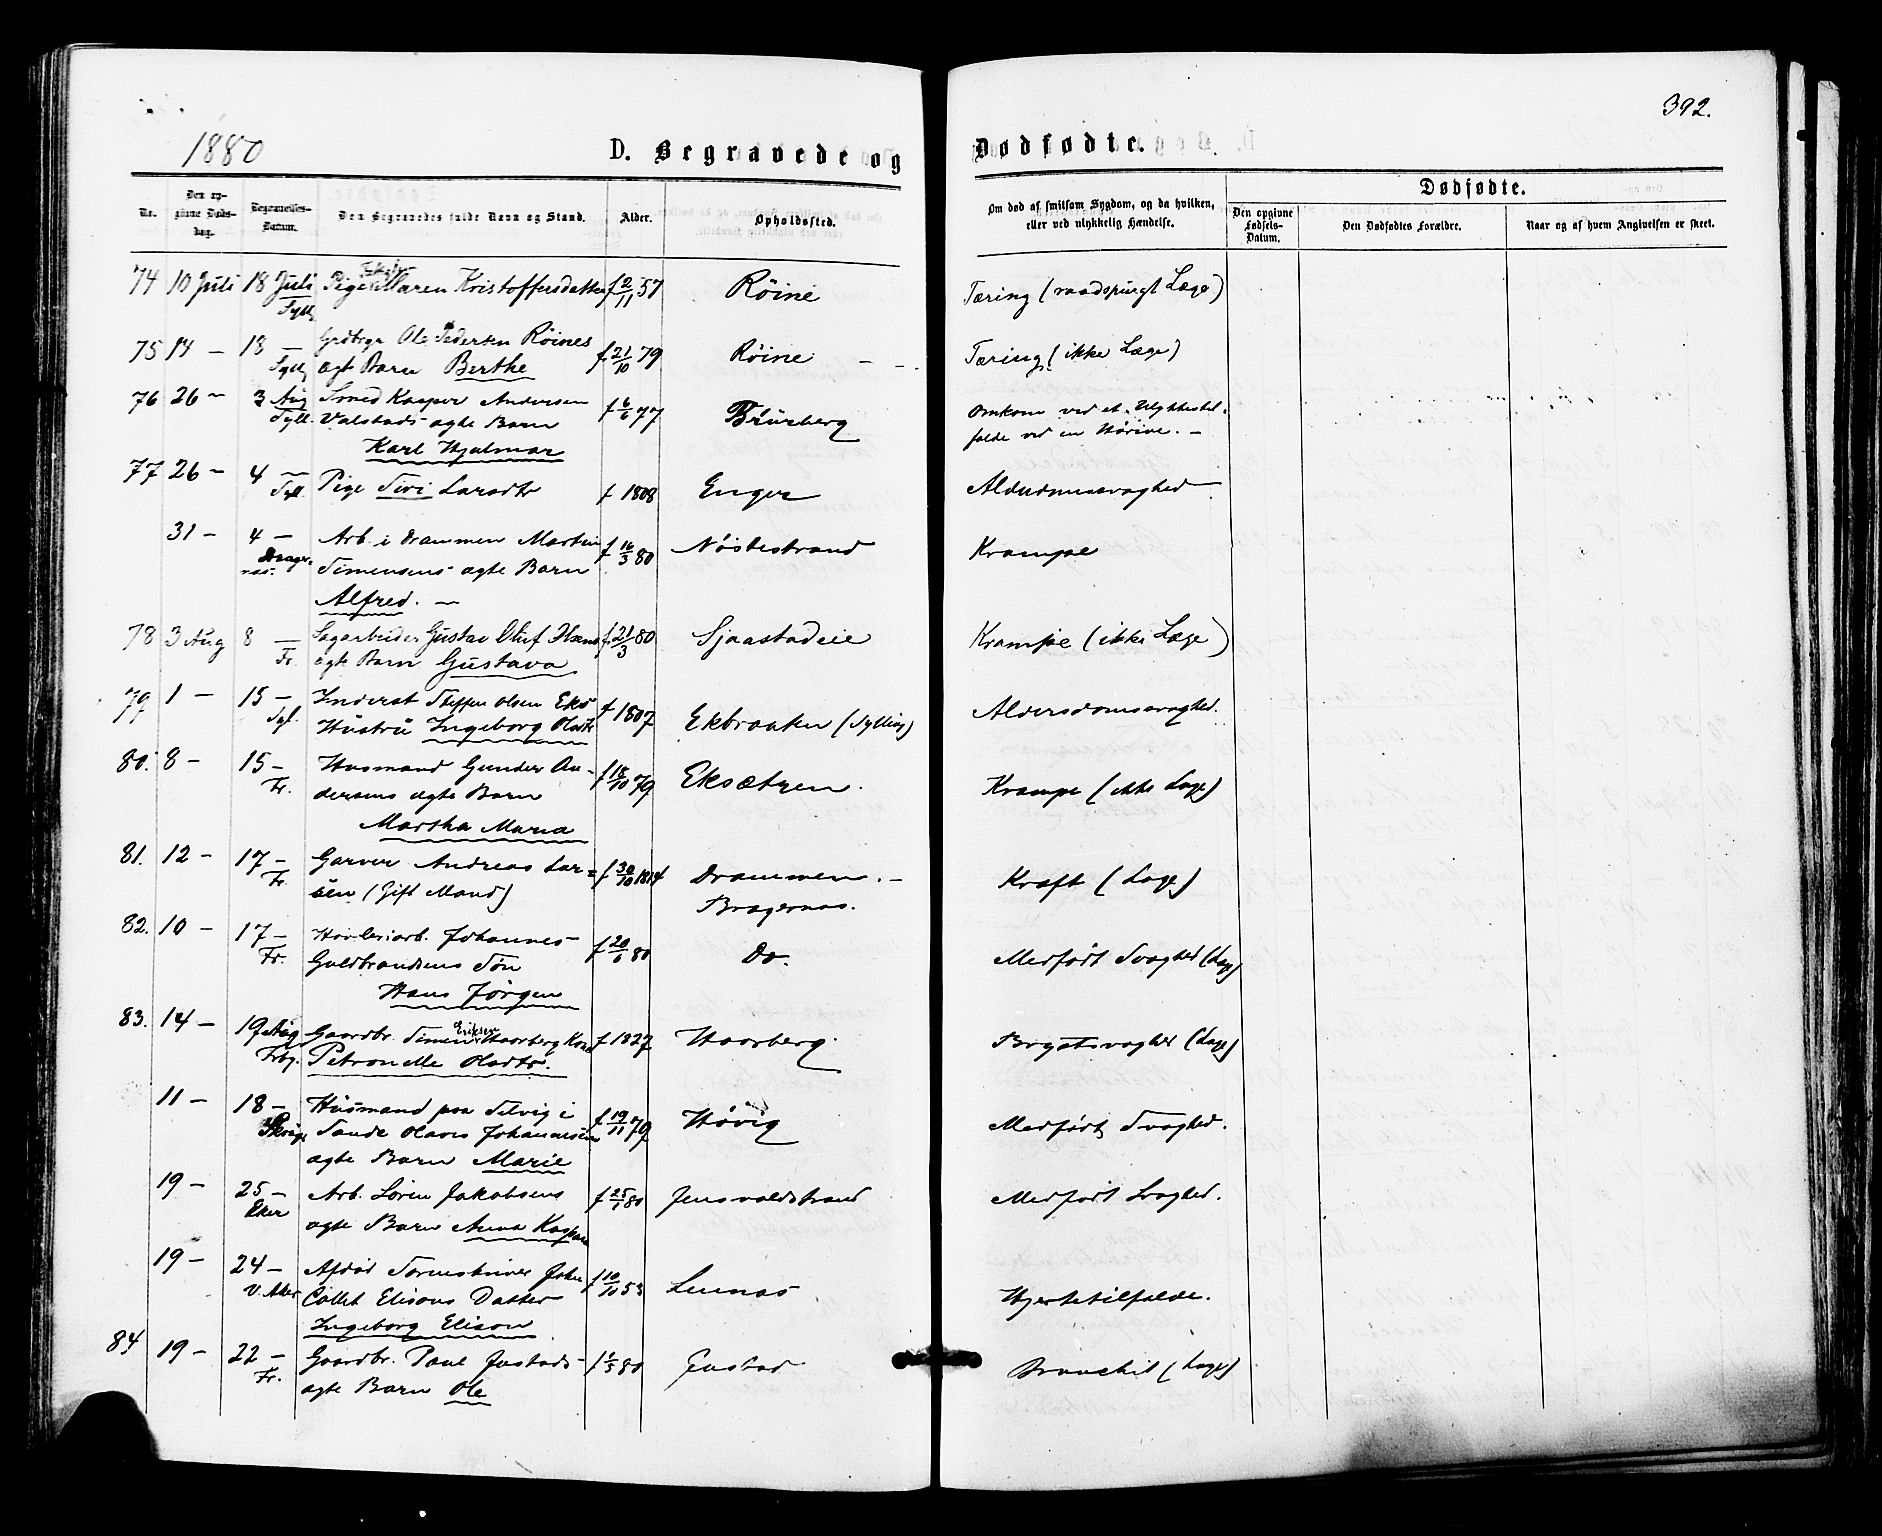 1880
D. Begravede og
Dødfødte.
392.
Nr.
Den opgivne Døds-dag.
Begravelses-Datum.
Den Begravedes fulde Navn og Stand.
Alder.
Opholdssted.
Om død af smitsom Sygdom, og da hvilken, eller ved ulykkelig Hændelse.
Dødfødte.
Den opgivne Fødsels-Datum.
Den Dødfødtes Forældre.
Naar og af hvem Angivelsen er skeet.
74 10 Juli 18 Juli Pige Maren Kristoffersdatter f 2/11 57 Röine Tæring (raadspurgt Læge)
Syll.
75 14 — 18 — Grdbrgr Ole Pedersen Röines f 21/10 79 Röine — Tæring (ikke Læge)
Syll. ægte Barn Berthe
76 26 — 3 Aug Smed Kasper Andersen f 6/6 77 Omkom ved et Ulykkestil-
Syll. Valstads ægte Barn fælde ved en
Karl Hjalmar
77 26 — 4 — Pige Siri Larsdtr f 1808 Enger Alderdomssvaghed
Syll.
31 — 4 — Arb. i Drammen Martin f 16/3 80 Nöstestrand Krampe
Simensens ægte Barn
Alfred. —
78 3 Aug 8 — Sagarbeider Gustav Oluf Hans f. 21/3 80 Sjaastadeie Krampe (ikke Læge)
Fr. ægte Barn Gustava
79 1 — 15 — Inderst Steffen Olsen Eks f 1807 Ekbraaten (Sylling) Aldersdomssvaghed.
Syl. Hustru Ingeborg Olsdtr
80. 8 — 15 — Husmand Gunder An- f 18/10 79 Eksætren. Krampe (ikke Læge)
Fr. dersens ægte Barn
Martha Maria
81. 12 — 17 — Garver Andreas Lar= f 30/10 1814 Drammen. — Kræft (Læge)
Fr. sen (Gift Mand) Bragernæs.
82. 10 — 17 — Johannes f 20/6 80 Do. Medfödt Svaghed (Læge)
Fr. Guldbrandsens Sön
Hans Jörgen
83. 14 — 19 Aug Gaardbr. Simen Eriksen Haarberg Kone f 1827 Haarberg Brystsvaghed (Læge)
Frbg. Petronelle Olsdtr.
11 — 18 — Husmand paa Selvig i f 19/11 79 Hövig Medfödt Svaghed.
Skoger Sande Olaves Johannesens
ægte Barn Marie
19 — 25 — Arb. Sören Jakobsens f 25/1 80 Jensvoldstrand Medfödt Svaghed.
Eker ægte Barn Anna Kaspara
19 — 24 — Afdöd Sorenskriver John f 10/10 53 Linnes Hjertetilfælde.
V. Aker Collet Elisons Datter
Ingeborg Elison
84 19 — 22 — Gaardbr. Paul Justads f 1/5 80 Justad Bronchit (Læge)
Fr. ægte Barn Ole